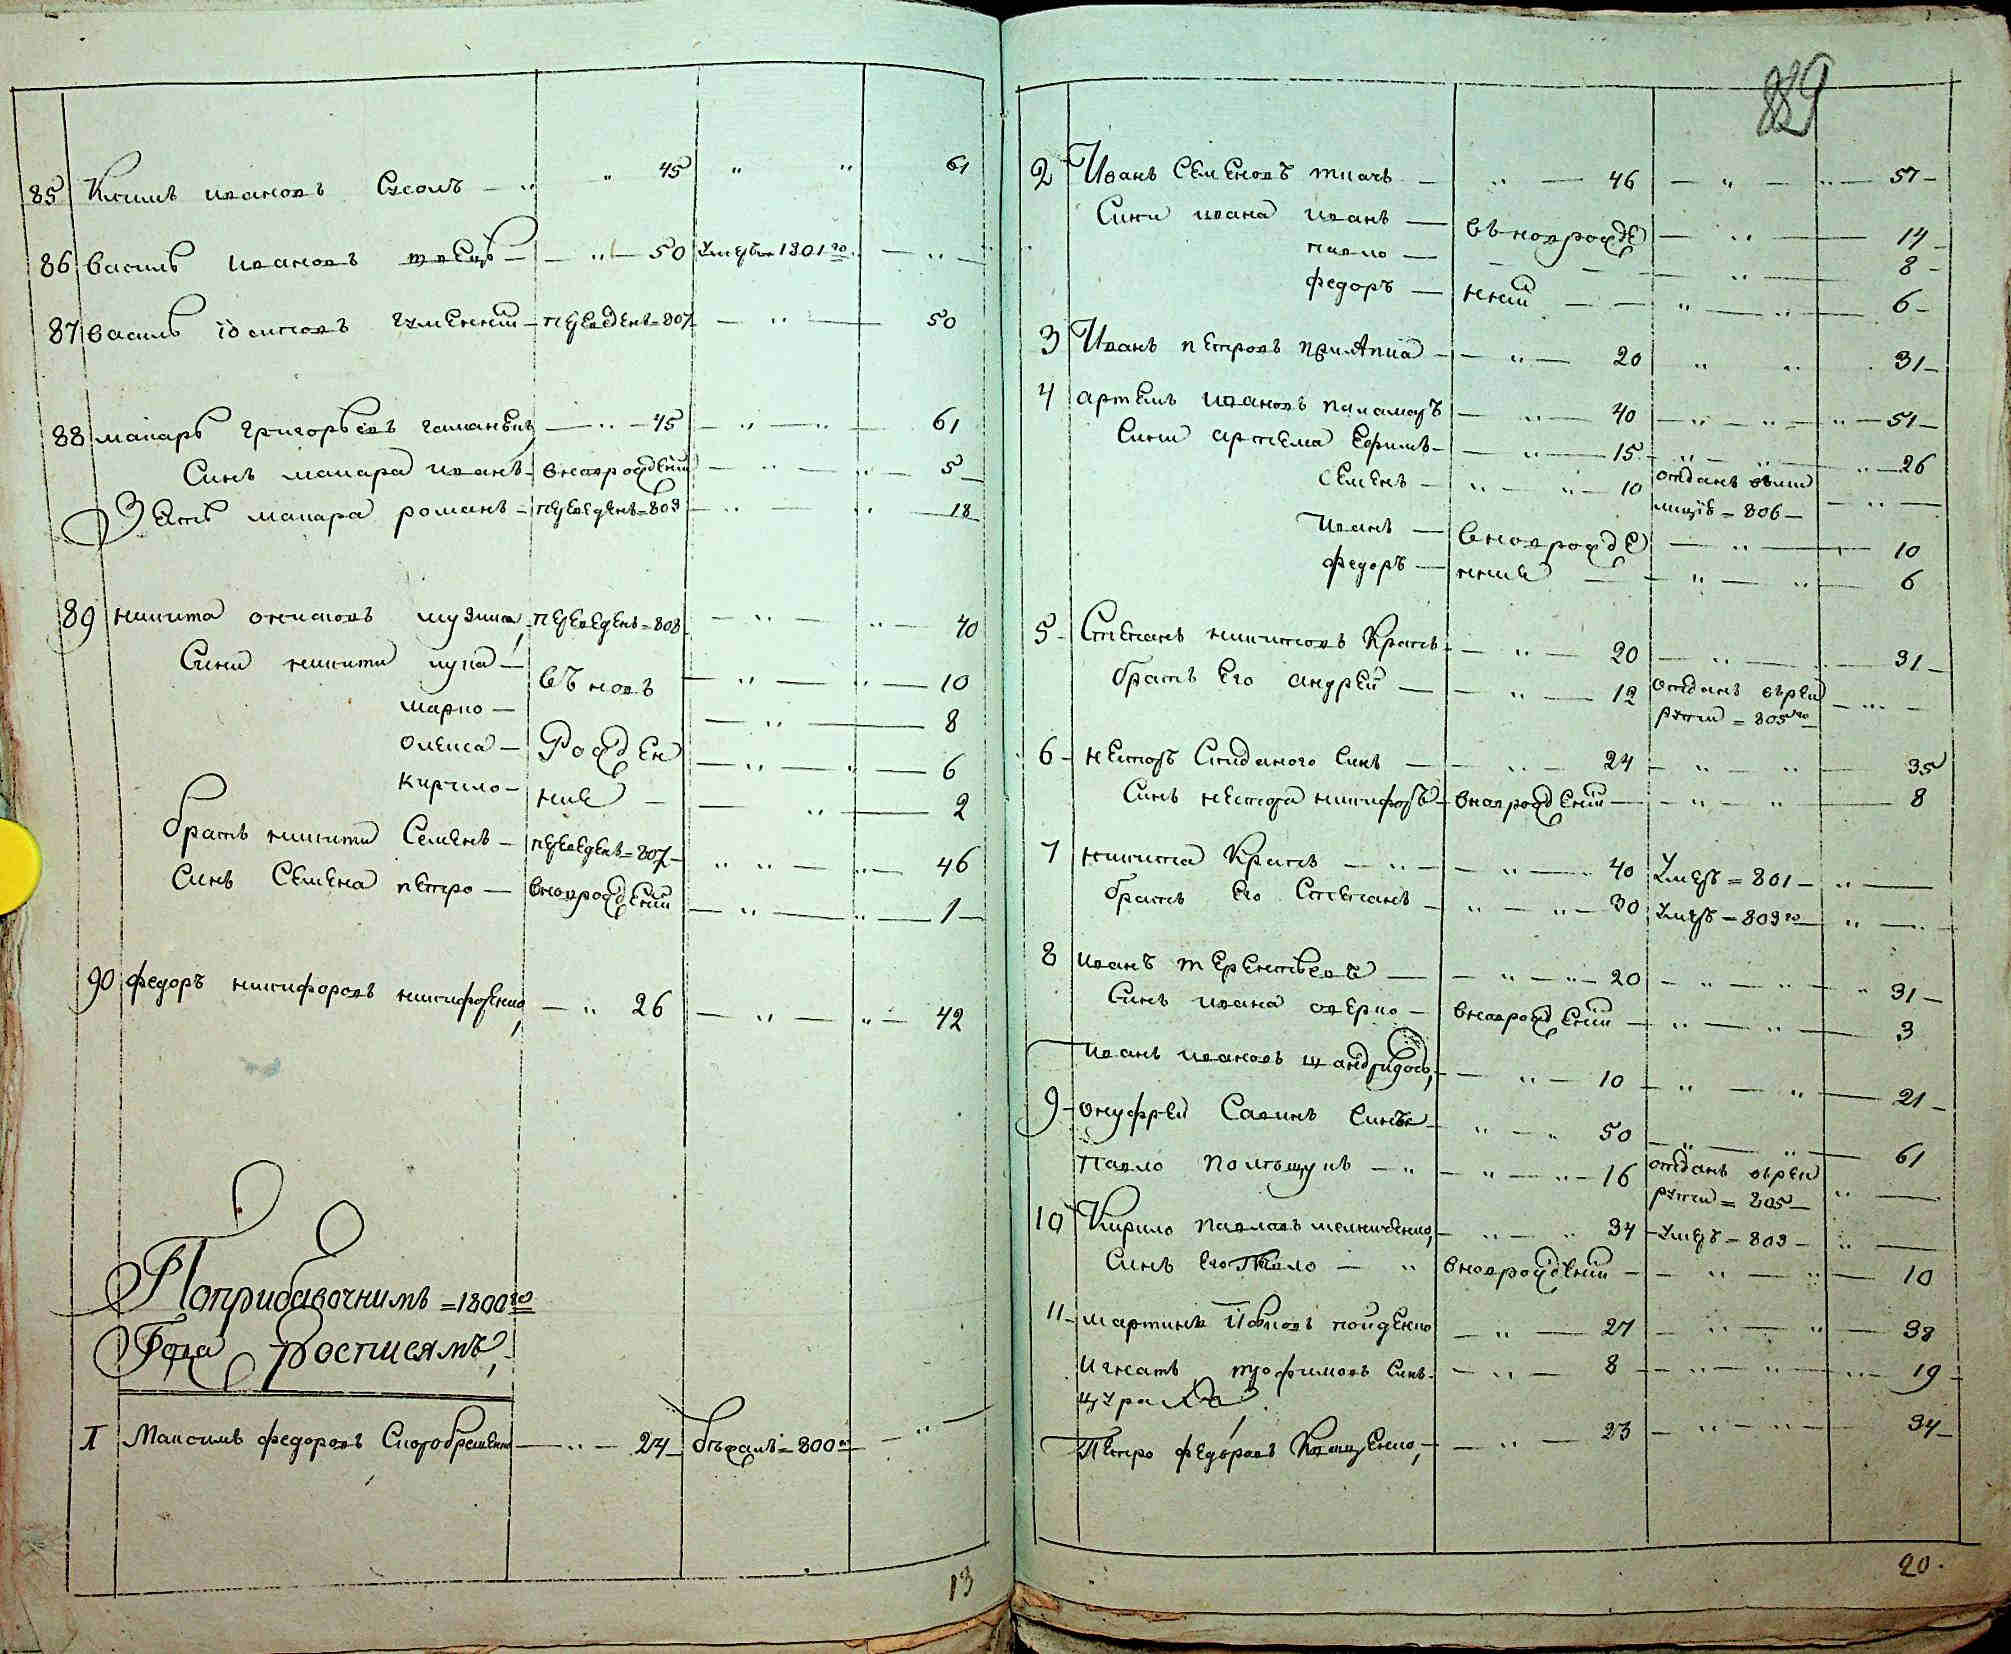 85 Климъ ивановъ Сколъ — " 45 " " 61
86 Василь ивановъ — " — 50 Умеръ 1801го — " —
87 Василь іосиповъ Гуменній — переведенъ = 807 — " — 50
88 макаръ григорьевъ — " — 45 — " — " — 61
Синъ макара иванъ — вноврожденій — " — " — 5 —
Зять макара романъ — переведенъ = 803 — " — " — 18
89 никита осиповъ музика, переведенъ = 808 — " — " — 40
Сини никити лука — въ новъ — " — " — 10
марко — — " — 8
олекса — рожден — " — " — 6
кирило — ние — — " — 2
братъ никити Семенъ — переведенъ = 807 — " " — " — 46
Синъ Семена петро — вноврожденій — " — " — 1 —
90 федоръ никифоровъ никифоренко, — " 26 — " — " — 42
Поприбавочнимъ = 1800го
Года росписямъ,
1 Максимъ федоровъ — " — 24 — бѣжалъ = 800го — " —
13
889
2 Иванъ Семеновъ ткачъ — " — 46 — " — " — 57 —
Сини ивана иванъ — въноврожде — " — 14 —
павло — — " — 8 —
федоръ — нній — — " — " — 6 —
3 Иванъ петровъ — " — 20 " " 31 —
4 артемъ ивановъ паламаръ — " — 40 — " — " — 51 —
Сини артема Ефимъ — " — 15 — " — " — " — 26
Семенъ — " — " — 10 отданъ вми
лицію = 806 — — " —
Иванъ — вноврожде — " — 10
федоръ — нние — — " — " — 6
5 — Степанъ никитовъ Кратъ — " — 20 — " — 31 —
братъ его андрей — — " — 12 отданъ врек
рути = 805го — " —
6 — нестеръ синъ — " — 24 — " — " — 35
Синъ нестера никифоръ — вноврожденій — — " — " — 8
7 никита Кратъ — " — " — 40 Умеръ = 801 — " —
братъ его Степанъ — " — " — 30 Умеръ = 803го — " — " —
8 иванъ терентьевъ — — " — " — 20 — " — " — " 31 —
Синъ ивана — вноврожденій — " — " — 3
иванъ ивановъ — " — 10 — " — " — 21 —
9 — онуфрей Савинъ Синъ — " — " 50 — " — " — 61
Павло — " — " — " — 16 отданъ врек
рути = 805 — " —
10 Кирило павловъ мелниченко, — " — " 34 — Умеръ = 803 — " —
Синъ его Павло — " вноврожденій — — " — " — 10
11 — мартинъ — " — 27 — " — " — 38
Игнатъ трофимовъ Синъ — " — 8 — " — " — 19 —
Петро федоровъ — " — 23 — " — " — 34 —
20.